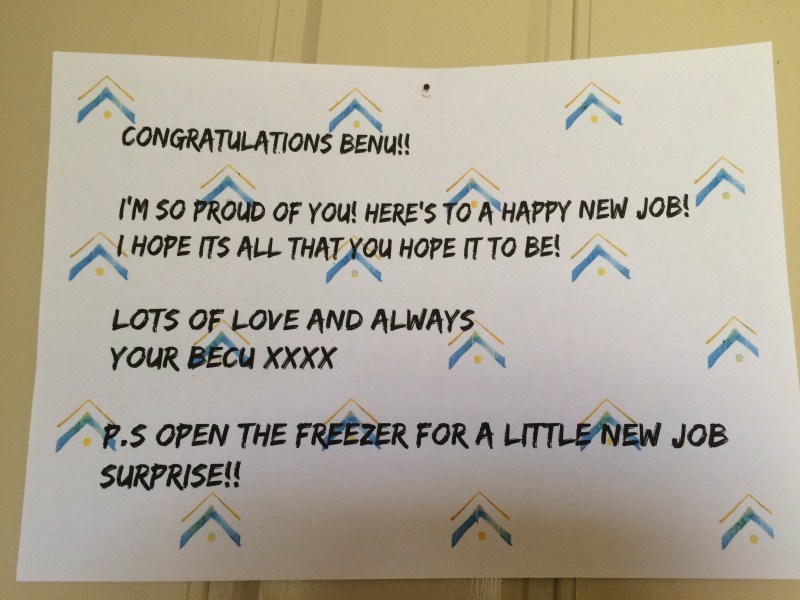 CONGRATULATIONS BENU!!
I'M SO PROUD OF YOU! HERE'S TO A HAPPY NEW JOB!
I HOPE ITS ALL THAT YOU HOPE IT TO BE!
LOTS OF LOVE AND ALWAYS
YOUR BECU XXXX
P.S OPEN THE FREEZER FOR A LITTLE NEW JOB
SURPRISE!!